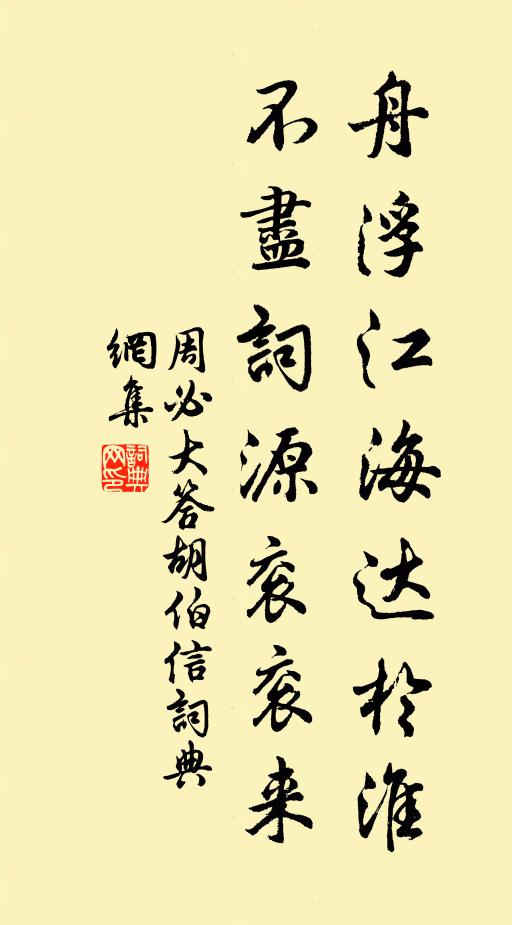 舟浮江海达於淮
不盡詞源衮衮来
周必大答胡伯信詞典
網集
詞典
网印